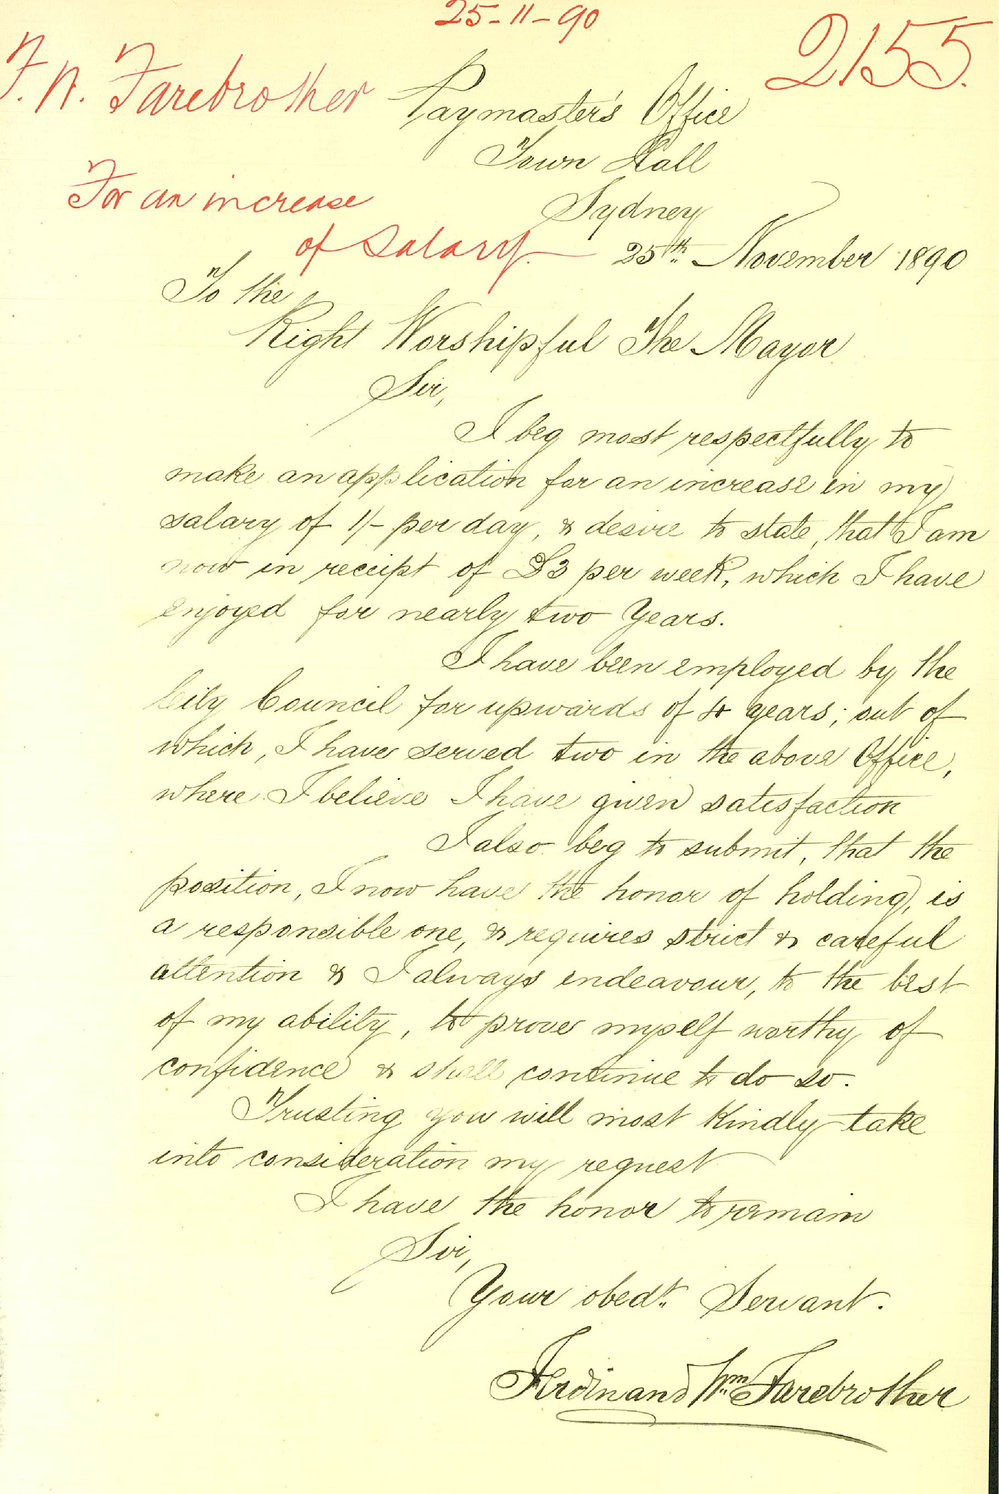 25-11-90
2155.
F. W. Farebrother
Paymaster's Office
Town Hall
For an increase
Sydney
of Salary.
25th. November 1890
To the
Right Worshipful The Mayor
Sir,
I beg most respectfully to
make an application for an increase in my
salary of 1/- per day, & desire to state, that I am
now in receipt of £3 per week, which I have
enjoyed for nearly two Years.
I have been employed by the
City Council for upwards of 4 years; out of
which, I have served two in the above Office,
where I believe I have given satisfaction
I also beg to submit, that the
position, I now have the honor of holding, is
a responsible one, & requires strict & careful
attention & I always endeavour, to the best
of my ability, to prove myself worthy of
confidence & shall continue to do so.
Trusting you will most Kindly take
into consideration my request
I have the honor to remain
Sir,
Your obedt. Servant.
Ferdinand Wm Farebrother